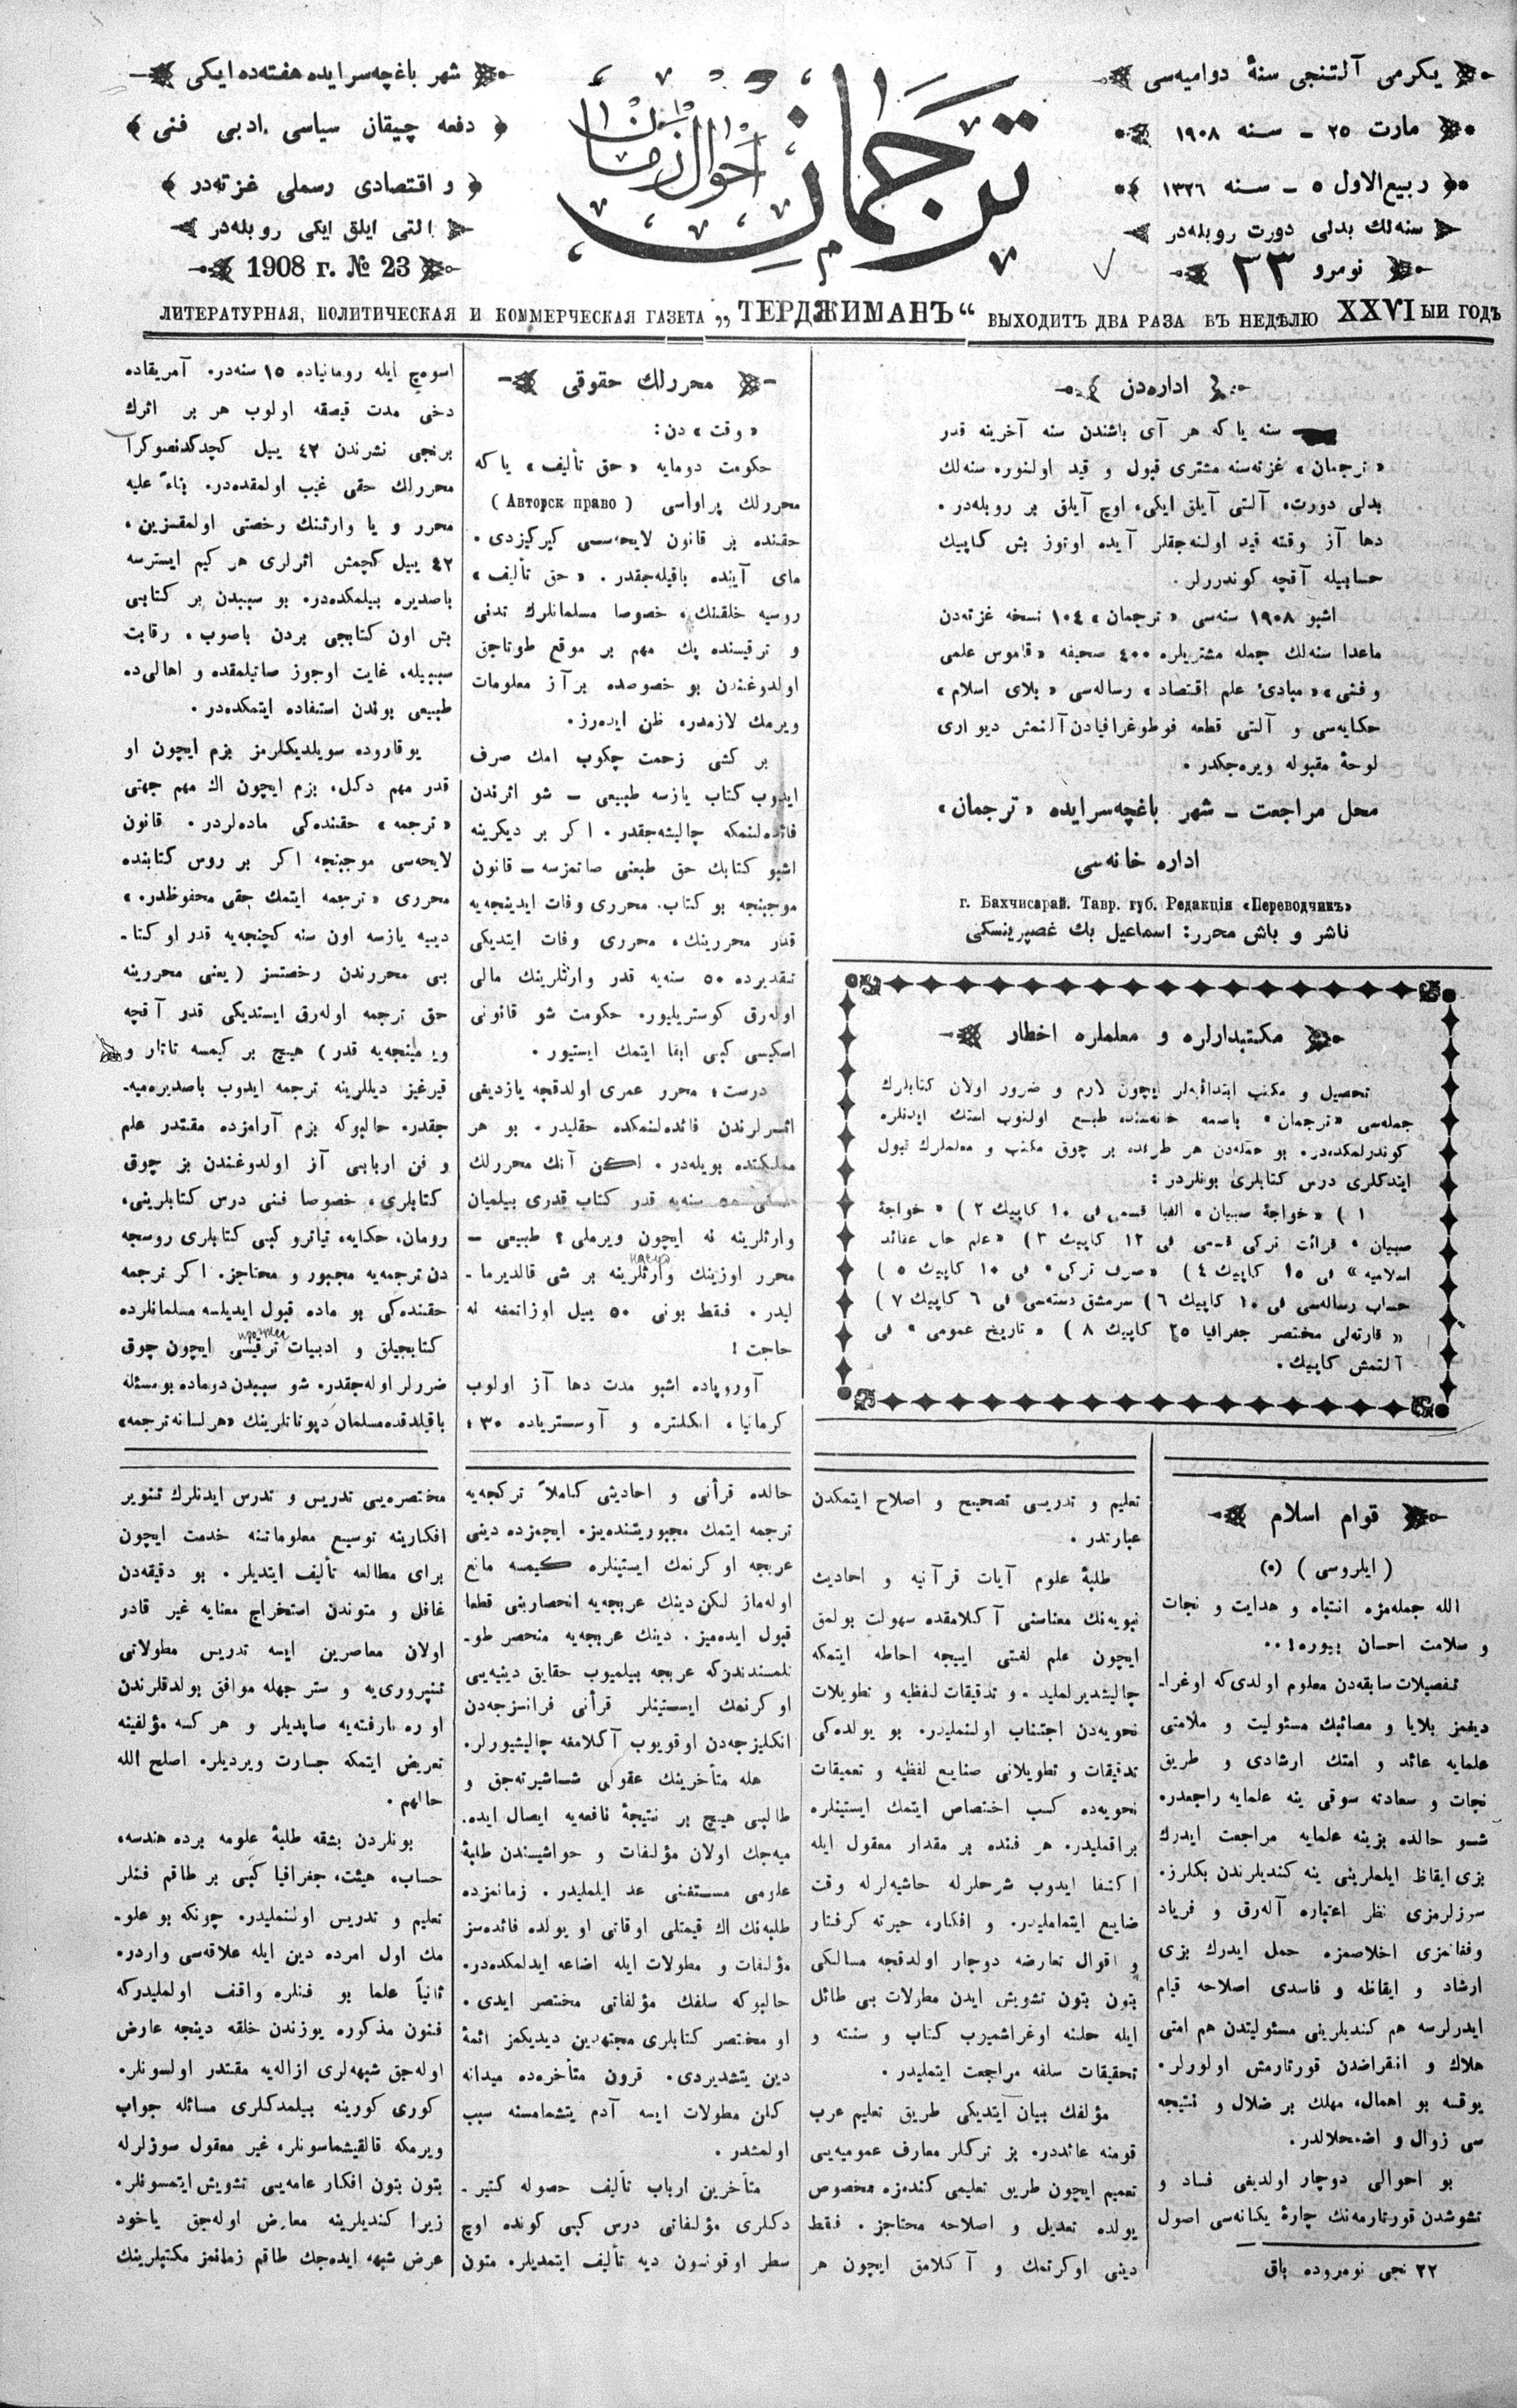 يكرمی آلتنجی سنهٔ دواميه‌سی
مارت ٢٥ ـ سنه ١٩٠٨
ربيع‌الاول ٥ ـ سنه ١٣٢٦
سنه‌لك بدلی دورت روبله‌در
نومرو ٢٣
ترجمان
احوال زمان
شهر باغچه‌سرايده هفته‌ده ايكی
دفعه چيقان سياسی، ادبی فنی
و اقتصادی رسملی غزته‌در
التی ايلق ايكی روبله‌در
1908 г. № 23
ЛИТЕРАТУРНАЯ, ПОЛИТИЧЕСКАЯ И КОММЕРЧЕСКАЯ ГАЗЕТА „ТЕРДЖИМАНЪ“ ВЫХОДИТЪ ДВА РАЗА ВЪ НЕДѢЛЮ XXVIЫЙ ГОДЪ
اداره‌دن
سنه ياكه هر آی باشندن سنه آخرينه قدر
«ترجمان» غزته‌سنه مشتری قبول و قيد اولنوره سنه‌لك
بدلی دورت، آلتی آيلق ايكی، اوچ آيلق بر روبله‌در.
دها آز وقته قيد اولنه‌جقلر آيده اوتوز بش كاپيك
حسابيله آقچه كوندررلر.
اشبو ١٩٠٨ سنه‌سی «ترجمان» ١٠٤ نسخه غزته‌دن
ماعدا سنه‌لك جمله مشتريلره ٤٠٠ صحيفه «قاموس علمی
و فنی» «مبادئ علم اقتصاد» رساله‌سی «بلای اسلام»
حكايه‌سی و آلتی قطعه فوطوغرافيادن آلنمش ديواری
لوحهٔ مقبوله ويره‌جكدر.
محل مراجعت ـ شهر باغچه‌سرايده «ترجمان»
اداره خانه‌سی
г. Бахчисарай. Тавр. губ. Редакція «Переводчикъ»
ناشر و باش محرر: اسماعيل بك غصپرينسكی
مكتبدارلره و معلملره اخطار
تحصيل و مكتب ابتدائيه‌لر ايچون لازم و ضرور اولان كتابلرك
جمله‌سی «ترجمان» باصمه خانه‌سنده طبع اولنوب استك ايدنلره
كوندرلمكده‌در. بو جمله‌دن هر طرفده بر چوق مكتب و معلملرك قبول
ايتدكلری درس كتابلری بونلردر:
١) «خواجهٔ صبيان» الفبا قسمی فی ١٠ كاپيك ٢) «خواجهٔ
صبيان» قرائت تركی قسمی فی ١٢ كاپيك ٣) «علم حال عقائد
اسلاميه» فی ١٥ كاپيك ٤) «صرف تركی» فی ١٠ كاپيك ٥)
حساب رساله‌سی فی ١٠ كاپيك ٦) سرمشق دسته‌سی فی ٦ كاپيك ٧)
«قارته‌لی مختصر جغرافيا ٢٥ كاپيك ٨) «تاريخ عمومی» فی
آلتمش كاپيك.
محررلك حقوقی
«وقت» دن:
حكومت دومايه «حق تأليف» ياكه
محررلك پراواسی (Авторск право)
حقنده بر قانون لايحه‌سی كيركيزدی.
مای آينده باقيله‌جقدر. «حق تأليف»
روسيه خلقنك، خصوصا مسلمانلرك تدنی
و ترقيسنده پك مهم بر موقع طوتاجق
اولدوغندن بو خصوصده برآز معلومات
ويرمك لازمدره ظن ايده‌رز.
بر كشی زحمت چكوب امك صرف
ايدوب كتاب يازسه طبيعی ـ شو اثرندن
فائده‌لنمكه چاليشه‌جقدر. اكر بر ديكرينه
اشبو كتابك حق طبعنی صاتمزسه ـ قانون
موجبنجه بو كتاب، محرری وفات ايدينجه‌يه
قدر محررينك، محرری وفات ايتديكی
تقديرده ٥٠ سنه‌يه قدر وارثلرينك مالی
اوله‌رق كوستريليور. حكومت شو قانونی
اسكيسی كبی ابقا ايتمك ايستيور.
درست؛ محرر عمری اولدقچه يازديغی
اثرلرندن فائده‌لنمكده حقليدر. بو هر
مملكتده بويله‌در. لكن آنك محررلك
٥٠ سنه‌يه قدر كتاب قدری بيلميان
وارثلرينه نه ايچون ويرملی؟ طبيعی ـ
محرر اوزينك وارثلرينه بر شی قالديرما ـ
ليدر. فقط بونی ٥٠ ييل اوزاتمغه نه
حاجت!
آوروپاده اشبو مدت دها آز اولوب
كرمانيا، انكلتره و آوسترياده ٣٠؛
اسوه‌چ ايله رومانياده ١٥ سنه‌در. آمريقاده
دخی مدت قيصقه اولوب هر بر اثرك
برنجی نشرندن ٤٢ ييل كچدكدنصوكرا
محررلك حقی غيب اولمقده‌در. بناءً عليه
محرر و يا وارثنك رخصتی اولمقسزين،
٤٢ ييل كچمش اثرلری هر كيم ايسترسه
باصديره بيلمكده‌در. بو سببدن بر كتابی
بش اون كتابجی بردن باصوب، رقابت
سببيله، غايت اوجوز صاتيلمقده و اهالی‌ده
طبيعی بوندن استفاده ايتمكده‌در.
يوقاروده سويلديكلرمز بزم ايچون او
قدر مهم دكل، بزم ايچون اك مهم جهتی
«ترجمه» حقنده‌كی ماده‌لردر. قانون
لايحه‌سی موجبنجه اكر بر روس كتابنده
محرری «ترجمه ايتمك حقی محفوظدر.»
دييه يازسه اون سنه كچنجه‌يه قدر او كتا ـ
بی محررندن رخصتسز (يعنی محررينه
حق ترجمه اوله‌رق ايستديكی قدر آقچه
ويرلينجه‌يه قدر) هيچ بر كيمسه تاتار و
قيرغيز ديللرينه ترجمه ايدوب باصديره‌ميه ـ
جقدر. حالبوكه بزم آرامزده مقتدر علم
و فن اربابی آز اولدوغندن بز چوق
كتابلری، خصوصا فنی درس كتابلرينی،
رومان، حكايه، تياترو كبی كتابلری روسجه
دن ترجمه‌يه مجبور و محتاجز. اكر ترجمه
حقنده‌كی بو ماده قبول ايديلسه مسلمانلرده
كتابجيلق و ادبيات ترقيسی ايچون چوق
ضررلر اوله‌جقدر. شو سببدن دوماده بو مسئله
باقيلدقده مسلمان دپوتاتلرينك «هر لسانه ترجمه»
قوام اسلام
(ايلروسی) (٥)
الله جمله‌مزه انتباه و هدايت و نجات
و سلامت احسان بيوره!..
تفصيلات سابقه‌دن معلوم اولدی‌كه اوغرا ـ
ديغمز بلايا و مصائبك مسئوليت و ملامتی
علمايه عائد و امتك ارشادی و طريق
نجات و سعادته سوقی ينه علمايه راجعدر.
شو حالده بزينه علمايه مراجعت ايدرك
بزی ايقاظ ايلملرينی ينه كنديلرندن بكلرز.
سوزلرمزی نظر اعتباره آله‌رق و فرياد
وفغانمزی اخلاصمزه حمل ايدرك بزی
ارشاد و ايقاظه و فاسدی اصلاحه قيام
ايدرلرسه هم كنديلرينی مسئوليتدن هم امتی
هلاك و انقراضدن قورتارمش اولورلر.
يوقسه بو اهمال، مهلك بر ضلال و نتيجه
سی زوال و اضمحلالدر.
بو احوالی دوچار اولديغی فساد و
تشوشدن قورتارمه‌نك چارهٔ يكانه‌سی اصول
٢٢ نجی نومروده باق
تعليم و تدريسی تصحيح و اصلاح ايتمكدن
عبارتدر.
طلبهٔ علوم آيات قرآنيه و احاديث
نبويه‌نك معناسنی آكلامقده سهولت بولمق
ايچون علم لغتی اييجه احاطه ايتمكه
چاليشديرلمليد. و تدقيقات لفظيه و تطويلات
نحويه‌دن اجتناب اولنمليدر. بو يولده‌كی
تدقيقات و تطويلاتی صنايع لفظيه و تعميقات
نحويه‌ده كسب اختصاص ايتمك ايستينلره
براقمليدر. هر فنده بر مقدار معقول ايله
اكتفا ايدوب شرحلرله حاشيه‌لرله وقت
ضايع ايتمامليدر. و افكار، حيرته كرفتار
و اقوال تعارضه دوچار اولدقجه مسالكی
بتون بتون تشويش ايدن مطولات بی طائل
ايله حلنه اوغراشميوب كتاب و سنته و
تحقيقات سلفه مراجعت ايتمليدر.
مؤلفك بيان ايتديكی طريق تعليم عرب
قومنه عائددر. بز تركلر معارف عموميه‌يی
تعميم ايچون طريق تعليمی كندمزه مخصوص
يولده تعديل و اصلاحه محتاجز. فقط
دينی اوكرنمك و آكلامق ايچون هر
حالده قرأنی و احاديثی كاملاً تركجه‌يه
ترجمه ايتمك مجبوريتنده‌يز. ايچمزده دينی
عربجه اوكرنمك ايستينلره كيمسه مانع
اوله‌ماز لكن دينك عربجه‌يه انحصارينی قطعا
قبول ايده‌ميز. دينك عربجه‌يه منحصر طو ـ
تلمسندندركه عربجه بيلميوب حقايق دينيه‌يی
اوكرنمك ايستينلر قرأنی فرانسزجه‌دن
انكليزجه‌دن اوقويوب آكلامغه چاليشيورلر.
هله متأخرينك عقولی شاشيرته‌جق و
طالبی هيچ بر نتيجهٔ نافعه‌يه ايصال ايده ـ
ميه‌جك اولان مؤلفات و حواشيسندن طلبهٔ
علومی مستغنی عد ايلمليدر. زمانمزده
طلبه‌نك اك قيمتلی اوقاتی او يولده فائده‌سز
مؤلفات و مطولات ايله اضاعه ايدلمكده‌در.
حالبوكه سلفك مؤلفاتی مختصر ايدی.
او مختصر كتابلری مجتهدين ديديكمز ائمهٔ
دين يتشديردی. قرون متأخره‌ده ميدانه
كلن مطولات ايسه آدم يتشمامسنه سبب
اولمشدر.
متأخرين ارباب تأليف حصوله كتير ـ
دكلری مؤلفاتی درس كبی كونده اوچ
سطر اوقونسون ديه تأليف ايتمديلر. متون
مختصره‌يی تدريس و تدرس ايدنلرك تنوير
افكارينه توسيع معلوماتنه خدمت ايچون
برای مطالعه تأليف ايتديلر. بو دقيقه‌دن
غافل و متوندن استخراج معنايه غير قادر
اولان معاصرين ايسه تدريس مطولاتی
تنپروری‌يه و ستر جهله موافق بولدقلرندن
او ره نارفته‌يه صاپديلر و هر كسه مؤلفينه
تعريض ايتمكه جسارت ويرديلر. اصلح الله
حالهم.
بونلردن بشقه طلبهٔ علومه برده هندسه،
حساب، هيئت، جغرافيا كبی بر طاقم فنلر
تعليم و تدريس اولنمليدر. چونكه بو علو ـ
مك اول امرده دين ايله علاقه‌سی واردر.
ثانياً علما بو فنلره واقف اولمليدركه
فنون مذكوره يوزندن خلقه دينجه عارض
اوله‌جق شبهه‌لری ازاله‌يه مقتدر اولسونلر.
كوری كورينه بيلمدكلری مسائله جواب
ويرمكه قالقيشماسونلر، غير معقول سوزلرله
بتون بتون افكار عامه‌يی تشويش ايتمسونلر.
زيرا كنديلرينه معارض اوله‌جق ياخود
عرض شبهه ايده‌جك طاقم زمانمز مكتبلرينك